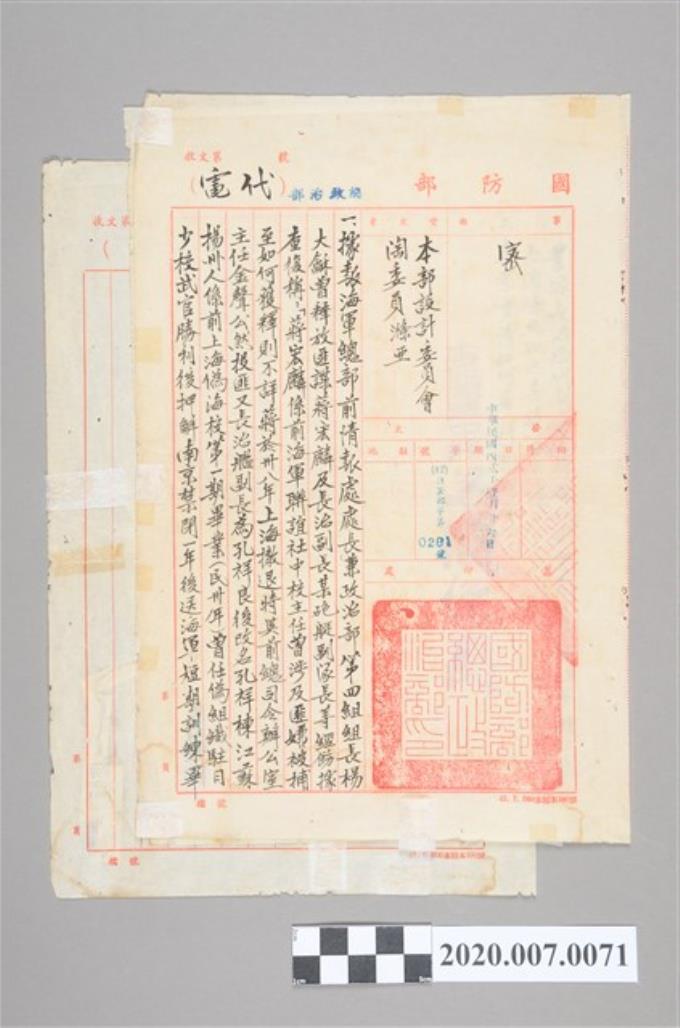 國防部
總政治部
代電
收文第 號
密
本部設計委員會
陶委員滌亞
一、據報海軍總部前情報處處長兼政治部第四組組長楊
大龢曾釋放匪諜蔣宏麟及長治副長某砲艇副隊長等經飭據
查復稱:「蔣宏麟係前海軍聯誼社中校主任曾涉及匪嫌被捕
至如何獲釋則不詳蔣於卅八年上海撤退時與前總司令辦公室
主任金聲公然投匪又長治艦副長為孔祥良後改名孔祥棟江蘇
揚州人係前上海偽海校第一期畢業(民卅年)曾任偽組織駐日
少校武官勝利後押解南京禁閉一年後送海軍短期訓練畢
0201
國防部總政治部印
2020.007.0071